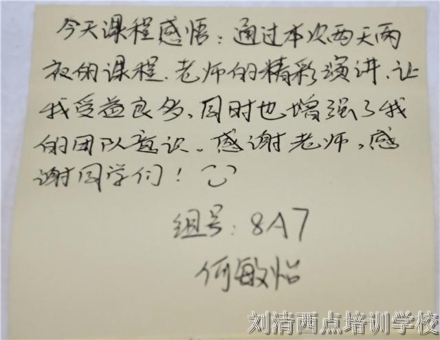 今天课程感悟：通过本次两天两
夜的课程，老师的精彩演讲，让
我受益良多，同时也增强了我
的团队意识。感谢老师，感
谢同学们！
组号：8A7
何敏怡
刘清西点培训学校